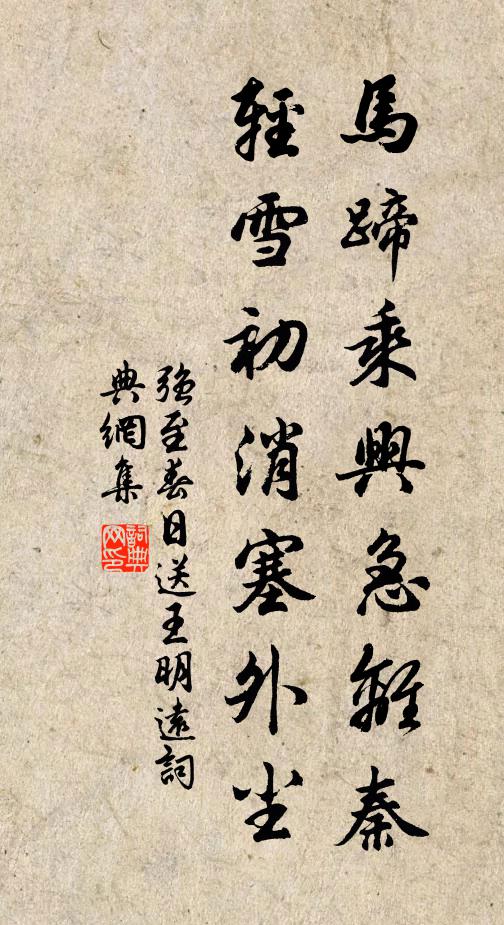 馬蹄乘興急離秦
輕雪初消塞外尘
强至春日送王明遠詞
典網集
詞典网印